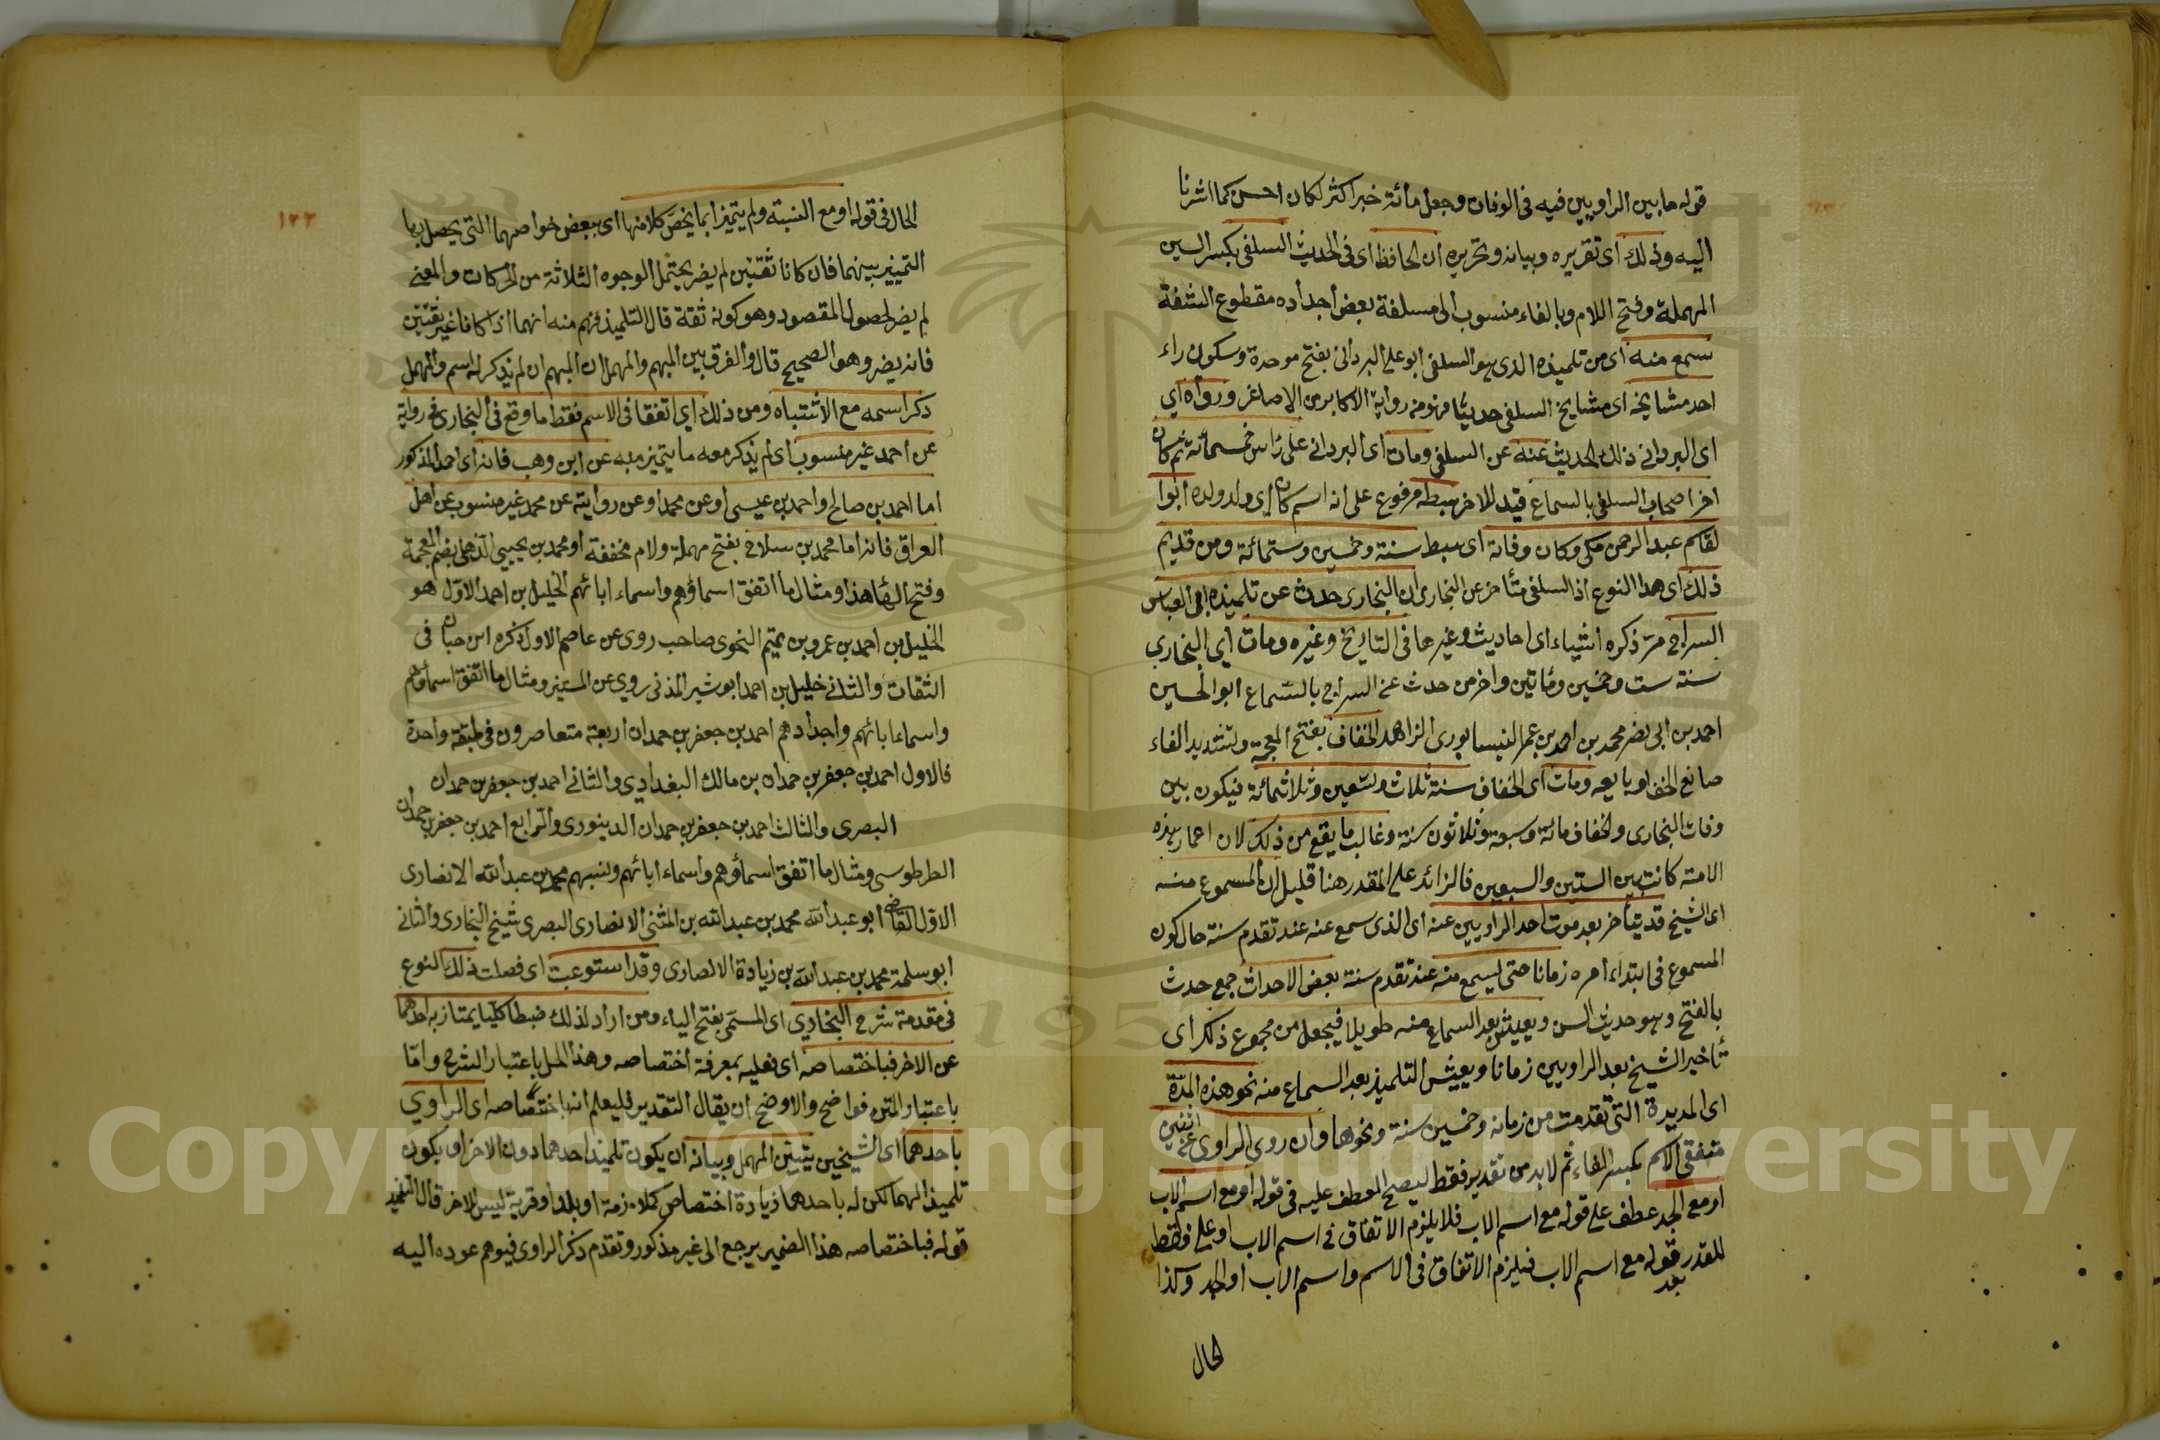 قوله ما بين الراويين فيه في الوفات وجعل مائة خبرا كثر لكان احسن كما اشرنا
اليه وذلك اى تقريره وبيانه وتحريره ان الحافظ اى في الحديث السلفى بكسر السين
المهملة وفتح اللام وبالفاء منسوب الى سلفة بعض اجداده مقطوع الشفة
سمع منه اى من تلميذه الذى هو السلفى ابو على البردانى بفتح موحدة وسكون راء
احد مشايخه اى مشايخ السلفى حديثا فهو من رواية الاكابر من الاصاغر ورواه اى
اى البردانى ذلك الحديث عنه عن السلفى ومات اى البردانى على راس خمسمائة ثم كان
اخر اصحاب السلفى بالسماع قيد للاخر سبطه مرفوع على انه اسم كان اى ولد ولده ابوا
لقاسم عبد الرحمن مكى وكان وفاته اى سبط سنة وخمسين وستمائة ومن قديم
ذلك اى هذا النوع اذ السلفى متأخر عن البخارى ان البخارى حدث عن تلميذه ابى العباس
السراج مرّ ذكره اشياء اى احاديث وغيرها فى التاريخ وغيره ومات اي البخاري
سنة ست وخمسين ومأتين واخر من حدث عن السراج بالسّماع ابو الحسين
احمد بن ابى نضر محمد بن احمد بن عمر النيسابورى الزاهد الخفاف بفتح المعجمة وتشديد الفاء
صانع الخف او بايعه ومات اى الخفاف سنة ثلاث وتسعين وثلاثمائة فيكون بين
وفات البخارى والخفاف مائة وسبعة وثلاثون سنة وغالب ما يقع من ذلك لان اعمار هذه
الامة كانت بين الستين والسبعين فالزائد على المقدر هنا قليل ان المسموع منه
اى الشيخ قد يتأخر بعد موت احد الراويين عنه اى الذى سمع عنه عند تقدم سنة حال كون
المسموع فى ابتداء امره زمانا حتى يسمع منه عند تقدم سنة بعض الاحداث جمع حدث
بالفتح وهو حديث السن ويعيش بعد السماع منه طويلا فيجعل من مجموع ذلك اى
تأخير الشيخ بعد الراويين زمانا ويعيش التلميذ بعد السماع منه نحو هذه المدّة
اى المديدة التى تقدمت من زمانه وخمسين سنة ونحوها وان روى الراوى عن اثنين
متفقى الاسم بكسر الفاء ثم لابد من تقدير فقط ليصح العطف عليه فى قوله او مع اسم الاب
او مع الجد عطف على قوله مع اسم الاب فلا يلزم الاتفاق فى اسم الاب او على فقط
المقدر بعد قوله مع اسم الاب فيلزم الاتفاق فى الاسم واسم الاب او الجد وكذا
الحال
١٢٢
الحال فى قوله او مع النسبة ولم يتميزا بما يخصّ كلا منهما اى ببعض خواصهما التى يحصل بها
التمييز بينهما فان كانا ثقتين لم يضر يحتمل الوجوه الثلاثة من الحركات والمعنى
لم يضر لحصول المقصود وهو كونه ثقة قال التلميذ فهم منه انهما اذا كانا غير ثقتين
فانه يضر وهو الصحيح قال والفرق بين المبهم والمهمل ان المبهم ان لم يذكر له اسم والمهمل
ذكر اسمه مع الاشتباه ومن ذلك اي اتفقا فى الاسم فقط ما وقع فى البخارى فى رواية
عن احمد غير منسوب اى لم يذكر معه ما يتميز به عن ابن وهب فانه اى احمد المذكور
اما احمد بن صالح واحمد بن عيسى او عن محمد او عن روايته عن محمد غير منسوب عن اهل
العراق فانه اما محمد بن سلام بفتح مهملة ولام مخففة او محمد بن يحيى الذهلى بضم المعجمة
وفتح الهاء هذا ومثال ما اتفق اسماؤهم واسماء ابائهم الخليل بن احمد الاوّل هو
الخليل بن احمد بن عمرو بن تميم النحوى صاحب روى عن عاصم الاول ذكره ابن حبان فى
الثقات والثانى خليل بن احمد ابو بشير المذنى روي عن المستنير ومثال ما اتفق اسماؤهم
واسماء ابائهم واجدادهم احمد بن جعفر بن حمدان اربعة متعاصرون فى طبقة واحدة
فالاول احمد بن جعفر بن حمدان بن مالك البغدادي والثانى احمد بن جعفر بن حمدان
البصرى والثالث احمد بن جعفر بن حمدان الدينورى والرّابع احمد بن جعفر بن حمدان
الطرطوسى ومثال ما اتفق اسماؤهم واسماء ابائهم ونسبهم محمد بن عبد الله الانصارى
الاوّل القاضى ابو عبد الله محمد بن عبد الله بن المثنى الانصارى البصرى شيخ البخارى والثانى
ابو سلمة محمد بن عبد الله بن زيادة الانصارى وقد استوعبت اى فصلت ذلك النوع
فى مقدمة شرح البخاري اى المسمّى بفتح الياء ومن اراد لذلك ضبطا كليا يمتاز به احدهما
عن الاخر فباختصاصه اى فعليه بمعرفة اختصاصه وهذا الحل باعتبار الشرح وامّا
باعتبار المتن فواضح والاوضح ان يقال التقدير فليعلم انه باختصاصه اى الراوي
باحدهما اى الشيخين يتبيّن المهمل وبيانه ان يكون تلميذ احدهما دون الاخر او يكون
تلميذ الهما لكن له باحدهما زيادة اختصاص كملازمة او بلد او قرية ليس للاخر قال التلميذ
قوله فباختصاصه هذا الضمير يرجع الى غير مذكور وتقدم ذكر الراوى فيوهم عوده اليه
Copyright © King Saud University
195